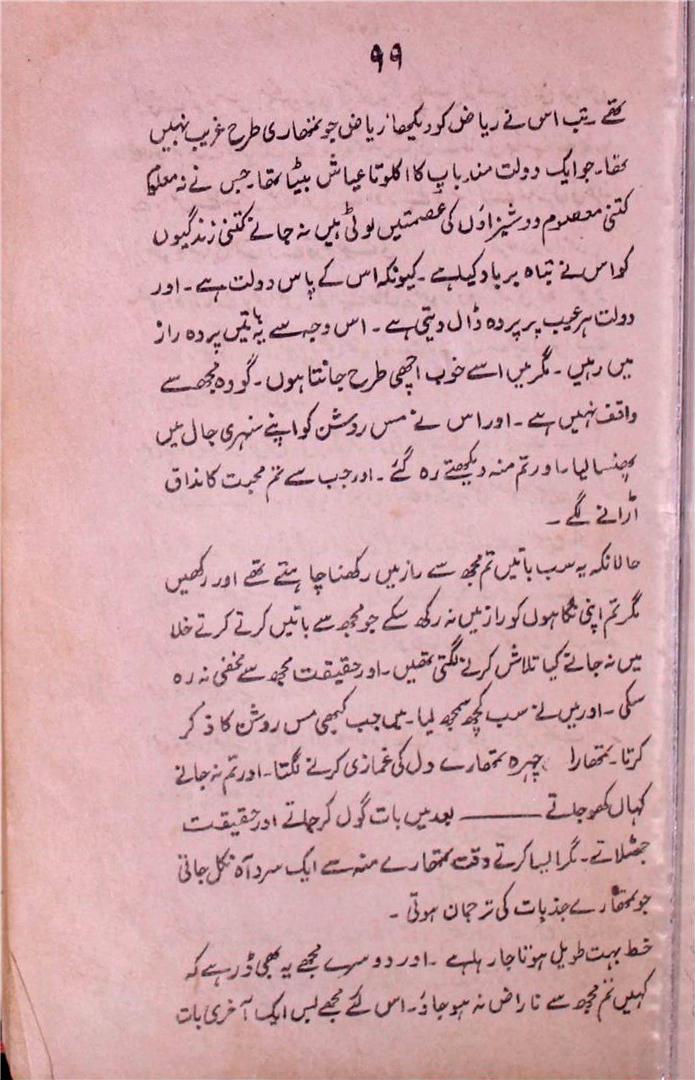 ۹۹
تھے تب اس نے ریاض کو دیکھا ریاض جو تمھاری طرح غریب نہیں
تھا۔ جو ایک دولت مند باپ کا اکلوتا عیاش بیٹا تھا۔ جس نے نہ معلوم
کتنی معصوم دوشیزاؤں کی عصمتیں لوٹی ہیں نہ جانے کتنی زندگیوں
کو اس نے تباہ برباد کیا ہے۔ کیونکہ اس کے پاس دولت ہے۔ اور
دولت ہر عیب پر پردہ ڈال دیتی ہے۔ اس وجہ سے یہ باتیں پردہ راز
میں رہیں۔ مگر میں اسے خوب اچھی طرح جانتا ہوں۔ گو وہ مجھ سے
واقف نہیں ہے۔ اور اس نے مس روشن کو اپنے سنہری جال میں
پھنسا لیا۔ اور تم منہ دیکھتے رہ گئے۔ اور جب سے تم محبت کا مذاق
اڑانے لگے۔
حالانکہ یہ سب باتیں تم مجھ سے راز میں رکھنا چاہتے تھے اور رکھیں
مگر تم اپنی نگاہوں کو راز میں نہ رکھ سکے جو مجھ سے باتیں کرتے کرتے خلا
میں نہ جانے کیا تلاش کرنے لگتی تھیں۔ اور حقیقت مجھ سے مخفی نہ رہ
سکی۔ اور میں نے سب کچھ سمجھ لیا۔ میں جب کبھی مس روشن کا ذکر
کرتا۔ تمھارا چہرہ تمھارے دل کی غمازی کرنے لگتا۔ اور تم نہ جانے
کہاں کھو جاتے ——— بعد میں بات گول کر جاتے اور حقیقت
جھٹلاتے۔ مگر ایسا کرتے وقت تمھارے منہ سے ایک سرد آہ نکل جاتی
جو تمھارے جذبات کی ترجمان ہوتی۔
خط بہت طویل ہوتا جا رہا ہے۔ اور دوسرے مجھے یہ بھی ڈر ہے کہ
کہیں تم مجھ سے ناراض نہ ہو جاؤ۔ اس لئے مجھے بس ایک آخری بات